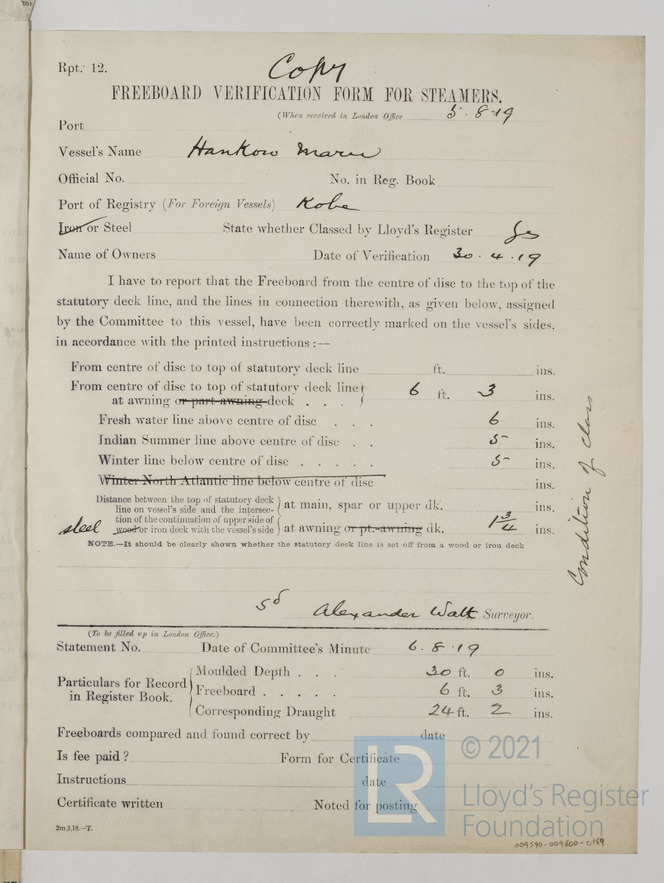 Rpt. 12.
Copy
FREEBOARD VERIFICATION FORM FOR STEAMERS.
(When received in London Office 5.8.19
Port
Vessel's Name Hankow Maru
Official No. No. in Reg. Book
Port of Registry (For Foreign Vessels) Kobe
Iron or Steel State whether Classed by Lloyd's Register Yes
Name of Owners Date of Verification 30.4.19
I have to report that the Freeboard from the centre of disc to the top of the
statutory deck line, and the lines in connection therewith, as given below, assigned
by the Committee to this vessel, have been correctly marked on the vessel's sides,
in accordance with the printed instructions :—
From centre of disc to top of statutory deck line ft. ins.
From centre of disc to top of statutory deck line
at awning or part awning deck . . . 6 ft. 3 ins.
Fresh water line above centre of disc . . . 6 ins.
Indian Summer line above centre of disc . . 5 ins.
Winter line below centre of disc . . . . . 5 ins.
Winter North Atlantic line below centre of disc ins.
Distance between the top of statutory deck
line on vessel's side and the intersec- at main, spar or upper dk. ins.
tion of the continuation of upper side of
steel wood or iron deck with the vessel's side at awning or pt. awning dk. 1 3/4 ins.
NOTE.—It should be clearly shown whether the statutory deck line is set off from a wood or iron deck
Condition of class
Sd Alexander Watt Surveyor.
(To be filled up in London Office.)
Statement No. Date of Committee's Minute 6.8.19
Particulars for Record in Register Book.
Moulded Depth . . . 30 ft. 0 ins.
Freeboard . . . . . 6 ft. 3 ins.
Corresponding Draught 24 ft. 2 ins.
Freeboards compared and found correct by date
Is fee paid? Form for Certificate
Instructions date
Certificate written Noted for posting
2m,3,18.—T.
LR
© 2021
Lloyd's Register
Foundation
009590-009600-0169